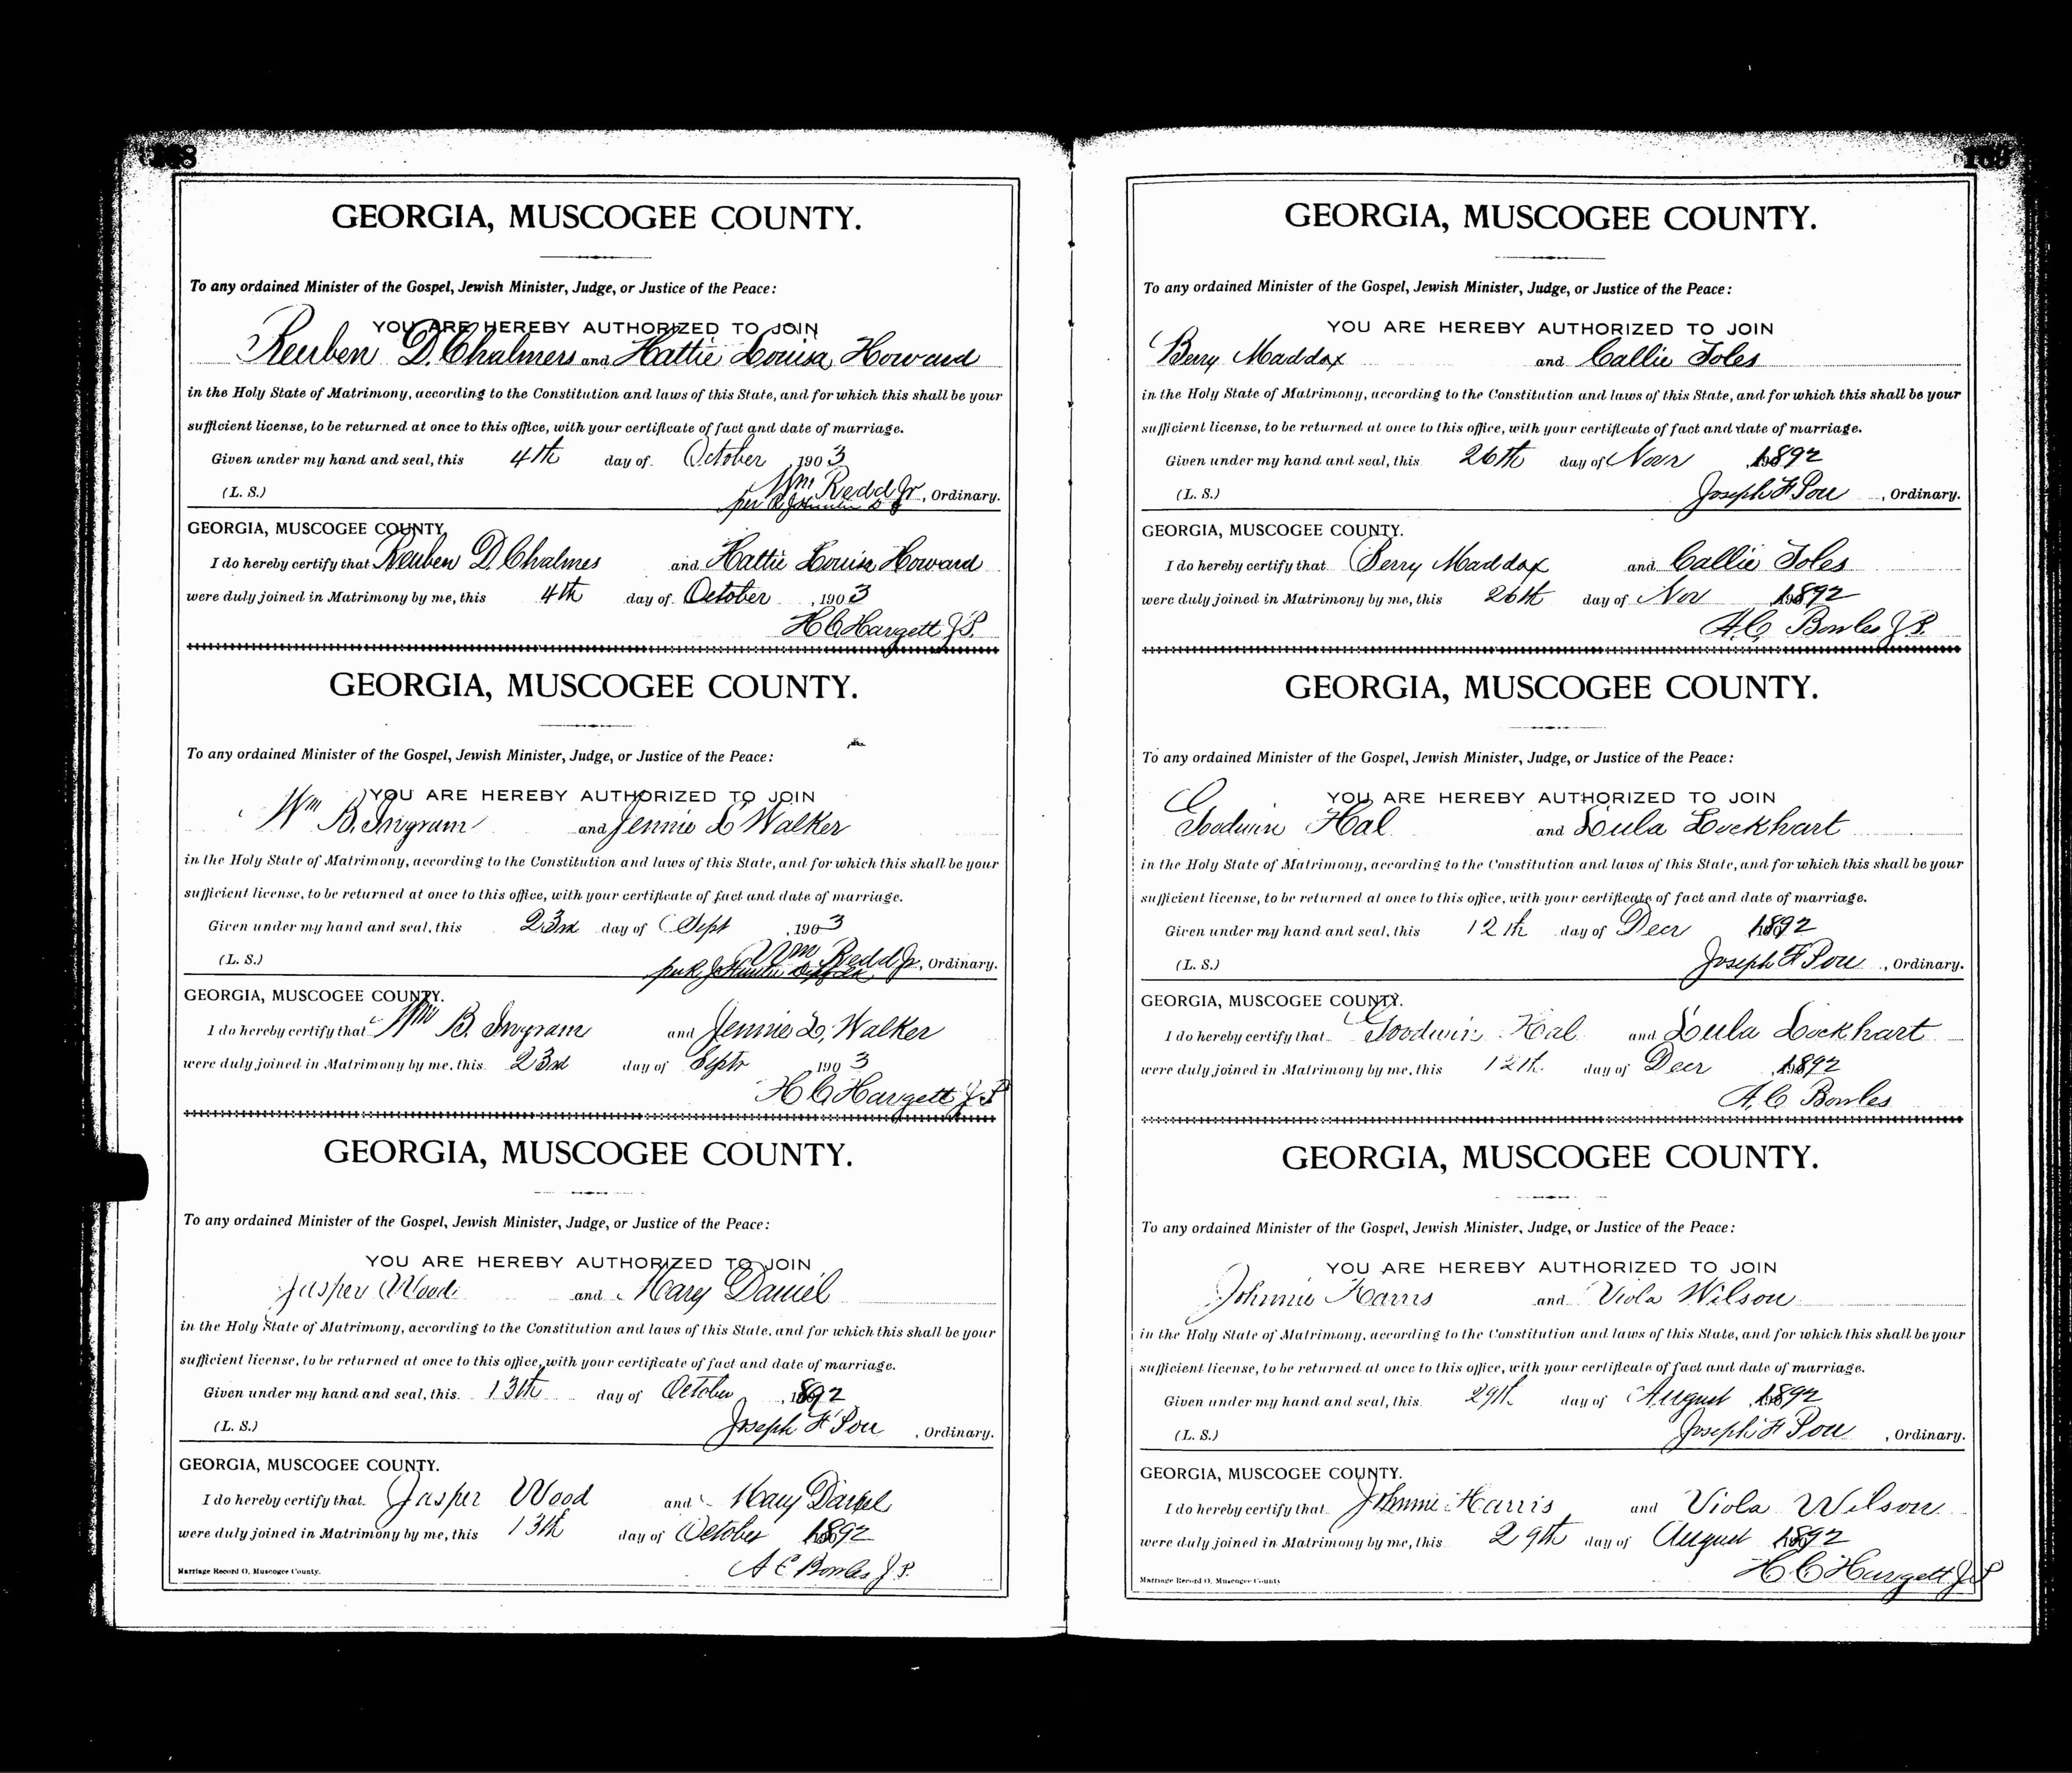 168
GEORGIA, MUSCOGEE COUNTY.
To any ordained Minister of the Gospel, Jewish Minister, Judge, or Justice of the Peace:
YOU ARE HEREBY AUTHORIZED TO JOIN
Reuben D. Chalmers and Hattie Louisa Howard
in the Holy State of Matrimony, according to the Constitution and laws of this State, and for which this shall be your
sufficient license, to be returned at once to this office, with your certificate of fact and date of marriage.
Given under my hand and seal, this 4th day of October, 1903
(L. S.) Wm Redd Jr, Ordinary.
per
GEORGIA, MUSCOGEE COUNTY.
I do hereby certify that Reuben D. Chalmes and Hattie Louisa Howard
were duly joined in Matrimony by me, this 4th day of October, 1903
H C Hargett J.P.
GEORGIA, MUSCOGEE COUNTY.
To any ordained Minister of the Gospel, Jewish Minister, Judge, or Justice of the Peace:
YOU ARE HEREBY AUTHORIZED TO JOIN
Wm B. Ingram and Jennie L Walker
in the Holy State of Matrimony, according to the Constitution and laws of this State, and for which this shall be your
sufficient license, to be returned at once to this office, with your certificate of fact and date of marriage.
Given under my hand and seal, this 23rd day of Sept, 1903
(L. S.) Wm Redd Jr, Ordinary.
GEORGIA, MUSCOGEE COUNTY.
I do hereby certify that Wm B. Ingram and Jennie L, Walker
were duly joined in Matrimony by me, this 23rd day of Septr, 1903
H C Hargett J.P
GEORGIA, MUSCOGEE COUNTY.
To any ordained Minister of the Gospel, Jewish Minister, Judge, or Justice of the Peace:
YOU ARE HEREBY AUTHORIZED TO JOIN
Jasper Wood and Mary Daniel
in the Holy State of Matrimony, according to the Constitution and laws of this State, and for which this shall be your
sufficient license, to be returned at once to this office, with your certificate of fact and date of marriage.
Given under my hand and seal, this 13th day of October, 1892
(L. S.) Joseph F Pou, Ordinary.
GEORGIA, MUSCOGEE COUNTY.
I do hereby certify that Jasper Wood and Mary Daniel
were duly joined in Matrimony by me, this 13th day of October 1892
A C Bowles J.P.
Marriage Record O, Muscogee County.
169
GEORGIA, MUSCOGEE COUNTY.
To any ordained Minister of the Gospel, Jewish Minister, Judge, or Justice of the Peace:
YOU ARE HEREBY AUTHORIZED TO JOIN
Berry Maddox and Callie Toles
in the Holy State of Matrimony, according to the Constitution and laws of this State, and for which this shall be your
sufficient license, to be returned at once to this office, with your certificate of fact and date of marriage.
Given under my hand and seal, this 26th day of Novr, 1892
(L. S.) Joseph F Pou, Ordinary.
GEORGIA, MUSCOGEE COUNTY.
I do hereby certify that Berry Maddox and Callie Toles
were duly joined in Matrimony by me, this 26th day of Nov 1892
A.C. Bowles J.P.
GEORGIA, MUSCOGEE COUNTY.
To any ordained Minister of the Gospel, Jewish Minister, Judge, or Justice of the Peace:
YOU ARE HEREBY AUTHORIZED TO JOIN
Goodwin Hal and Lula Lockhart
in the Holy State of Matrimony, according to the Constitution and laws of this State, and for which this shall be your
sufficient license, to be returned at once to this office, with your certificate of fact and date of marriage.
Given under my hand and seal, this 12th day of Decr 1892
(L. S.) Joseph F Pou, Ordinary.
GEORGIA, MUSCOGEE COUNTY.
I do hereby certify that Goodwin Hal and Lula Lockhart
were duly joined in Matrimony by me, this 12th. day of Decr, 1892
A.C Bowles
GEORGIA, MUSCOGEE COUNTY.
To any ordained Minister of the Gospel, Jewish Minister, Judge, or Justice of the Peace:
YOU ARE HEREBY AUTHORIZED TO JOIN
Johnnie Harris and Viola Wilson
in the Holy State of Matrimony, according to the Constitution and laws of this State, and for which this shall be your
sufficient license, to be returned at once to this office, with your certificate of fact and date of marriage.
Given under my hand and seal, this 29th. day of August, 1892
(L. S.) Joseph F Pou, Ordinary.
GEORGIA, MUSCOGEE COUNTY.
I do hereby certify that Johnnie Harris and Viola Wilson
were duly joined in Matrimony by me, this 29th day of August 1892
H C Hargett J.P
Marriage Record O, Muscogee County